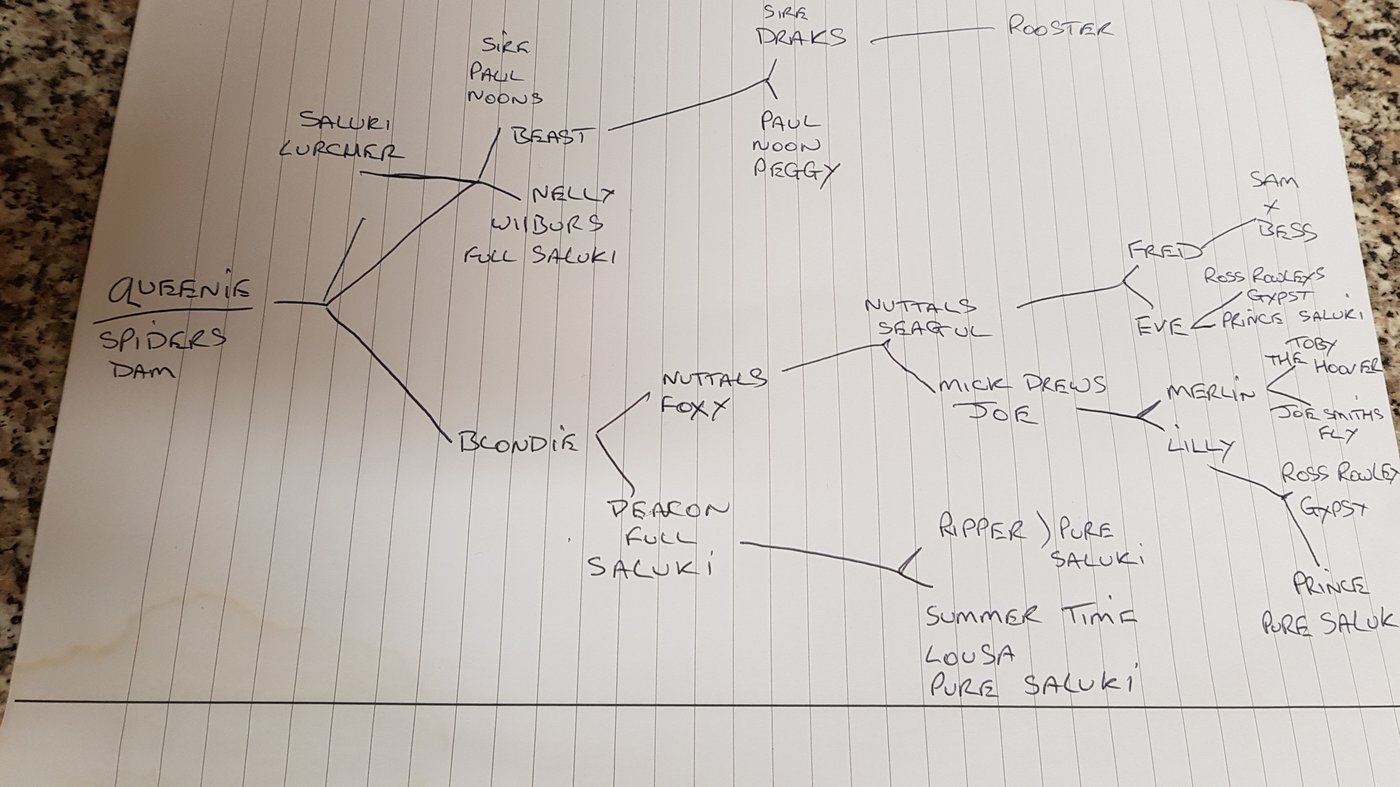 SIRE
DRAKS
ROOSTER
SIRE
PAUL
NOONS
BEAST
SALUKI
LURCHER
PAUL
NOON
PEGGY
NELLY
WILBURS
FULL SALUKI
SAM
X
BESS
FRED
ROSS ROWLEYS
GYPSY
PRINCE SALUKI
EVE
QUEENIE
SPIDERS
DAM
NUTTALS
SEAGUL
TOBY
THE HOOVER
MERLIN
JOE SMITHS
FLY
NUTTALS
FOXY
MICK DREWS
JOE
LILLY
BLONDIE
ROSS ROWLEY
GYPSY
DEACON
FULL
SALUKI
RIPPER ) PURE
SALUKI
PRINCE
PURE SALUK
SUMMER TIME
LOUSA
PURE SALUKI